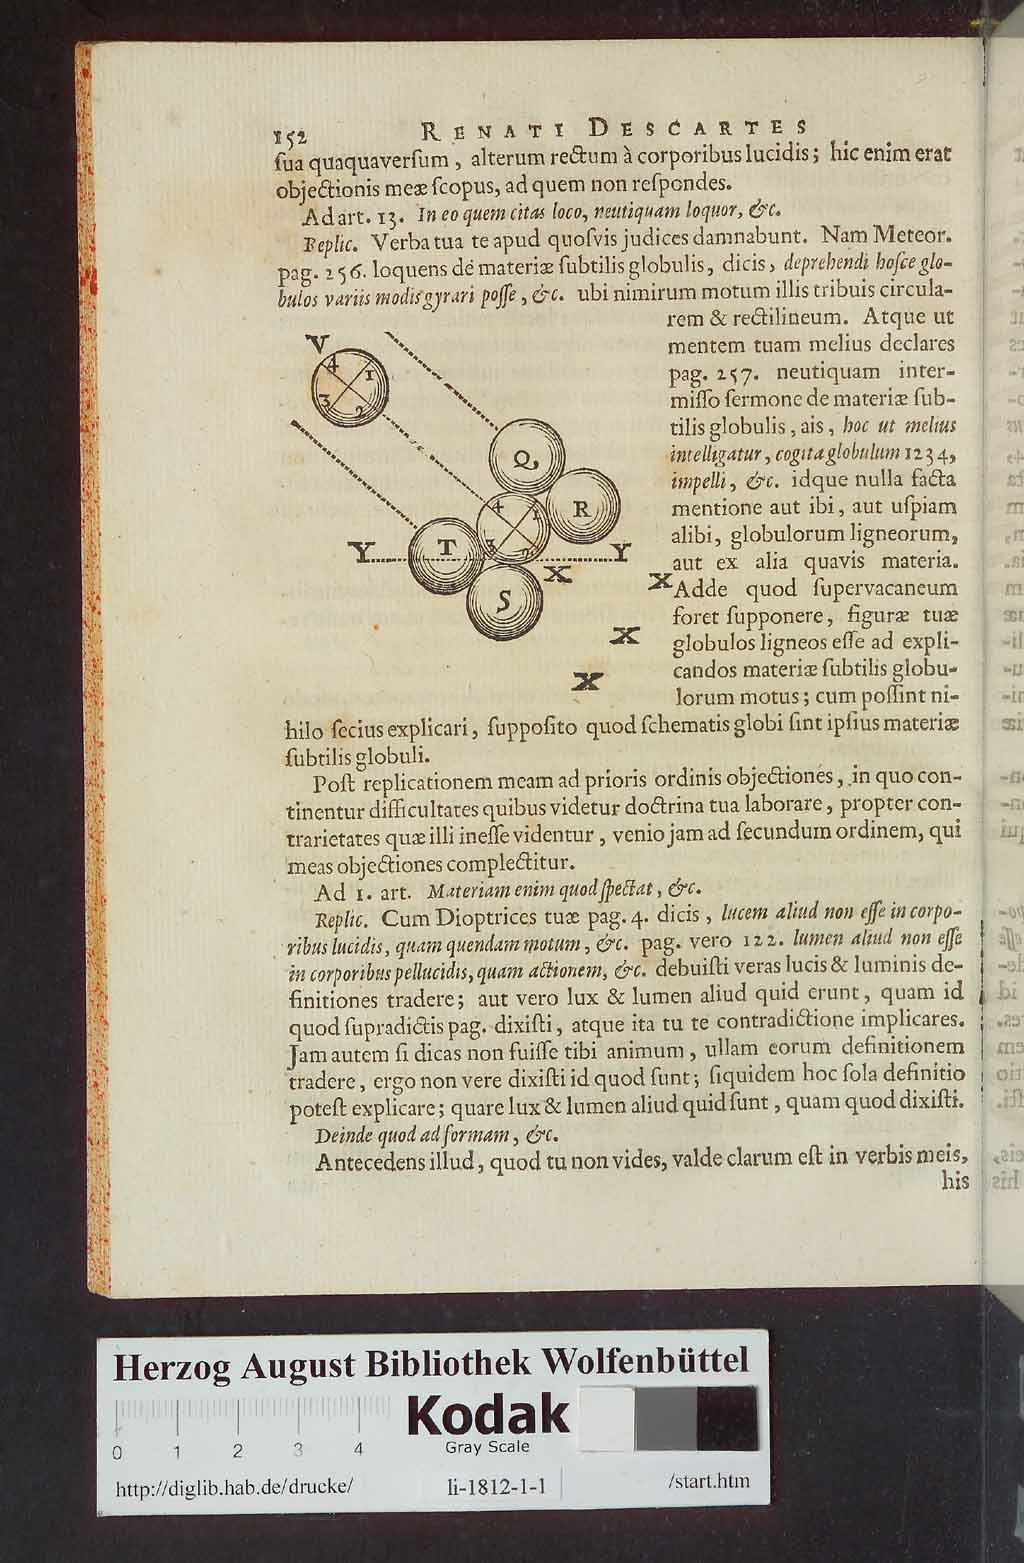 152 RENATI DESCARTES
ſua quaquaverſum, alterum rectum à corporibus lucidis; hic enim erat
objectionis meæ ſcopus, ad quem non reſpondes.
Ad art. 13. In eo quem citas loco, neutiquam loquor, &c.
Replic. Verba tua te apud quoſvis judices damnabunt. Nam Meteor.
pag. 256. loquens de materiæ ſubtilis globulis, dicis, deprehendi hoſce glo-
bulos variis modis gyrari poſſe, &c. ubi nimirum motum illis tribuis circula-
rem & rectilineum. Atque ut
mentem tuam melius declares
pag. 257. neutiquam inter-
miſſo ſermone de materiæ ſub-
tilis globulis, ais, hoc ut melius
intelligatur, cogita globulum 1234,
impelli, &c. idque nulla facta
mentione aut ibi, aut uſpiam
alibi, globulorum ligneorum,
aut ex alia quavis materia.
Adde quod ſupervacaneum
foret ſupponere, figuræ tuæ
globulos ligneos eſſe ad expli-
candos materiæ ſubtilis globu-
lorum motus; cum poſſint ni-
V
4 1
3 2
Q
4 1
3 2
R
Y T Y
X
X
S
X
X
hilo ſecius explicari, ſuppoſito quod ſchematis globi ſint ipſius materiæ
ſubtilis globuli.
Poſt replicationem meam ad prioris ordinis objectiones, in quo con-
tinentur difficultates quibus videtur doctrina tua laborare, propter con-
trarietates quæ illi ineſſe videntur, venio jam ad ſecundum ordinem, qui
meas objectiones complectitur.
Ad 1. art. Materiam enim quod ſpectat, &c.
Replic. Cum Dioptrices tuæ pag. 4. dicis, lucem aliud non eſſe in corpo-
ribus lucidis, quam quendam motum, &c. pag. vero 122. lumen aliud non eſſe
in corporibus pellucidis, quam actionem, &c. debuiſti veras lucis & luminis de-
finitiones tradere; aut vero lux & lumen aliud quid erunt, quam id
quod ſupradictis pag. dixiſti, atque ita tu te contradictione implicares.
Jam autem ſi dicas non fuiſſe tibi animum, ullam eorum definitionem
tradere, ergo non vere dixiſti id quod ſunt; ſiquidem hoc ſola definitio
poteſt explicare; quare lux & lumen aliud quid ſunt, quam quod dixiſti.
Deinde quod ad formam, &c.
Antecedens illud, quod tu non vides, valde clarum eſt in verbis meis,
his
Herzog August Bibliothek Wolfenbüttel
Kodak
Gray Scale
0 1 2 3 4
http://diglib.hab.de/drucke/ li-1812-1-1 /start.htm